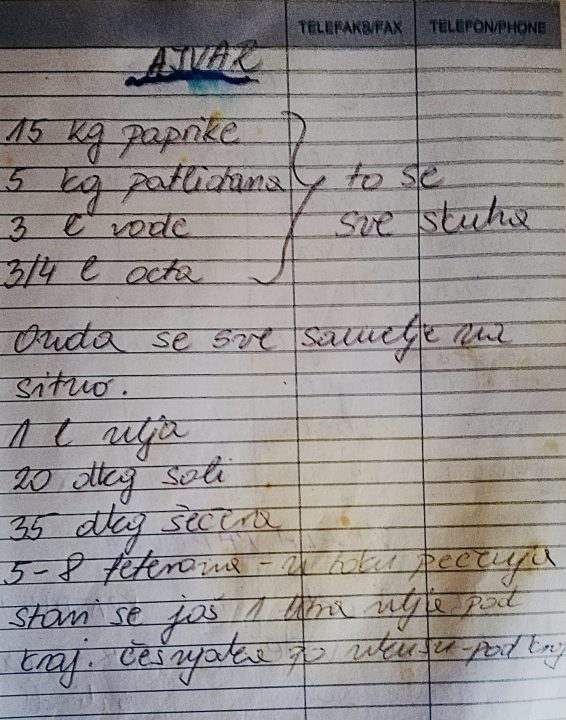 TELEFAKS/FAX TELEFON/PHONE
AJVAR
15 kg paprike
5 kg patliđana to se
3 l vode sve skuha
3/4 l octa
Onda se sve samelje na
sitno.
1 l ulja
20 dkg soli
35 dkg šećera
5-8 feferona - u toku pečenja
stavi se još 1 litra ulja pod
kraj. češnjaka po ukusu - pod kraj